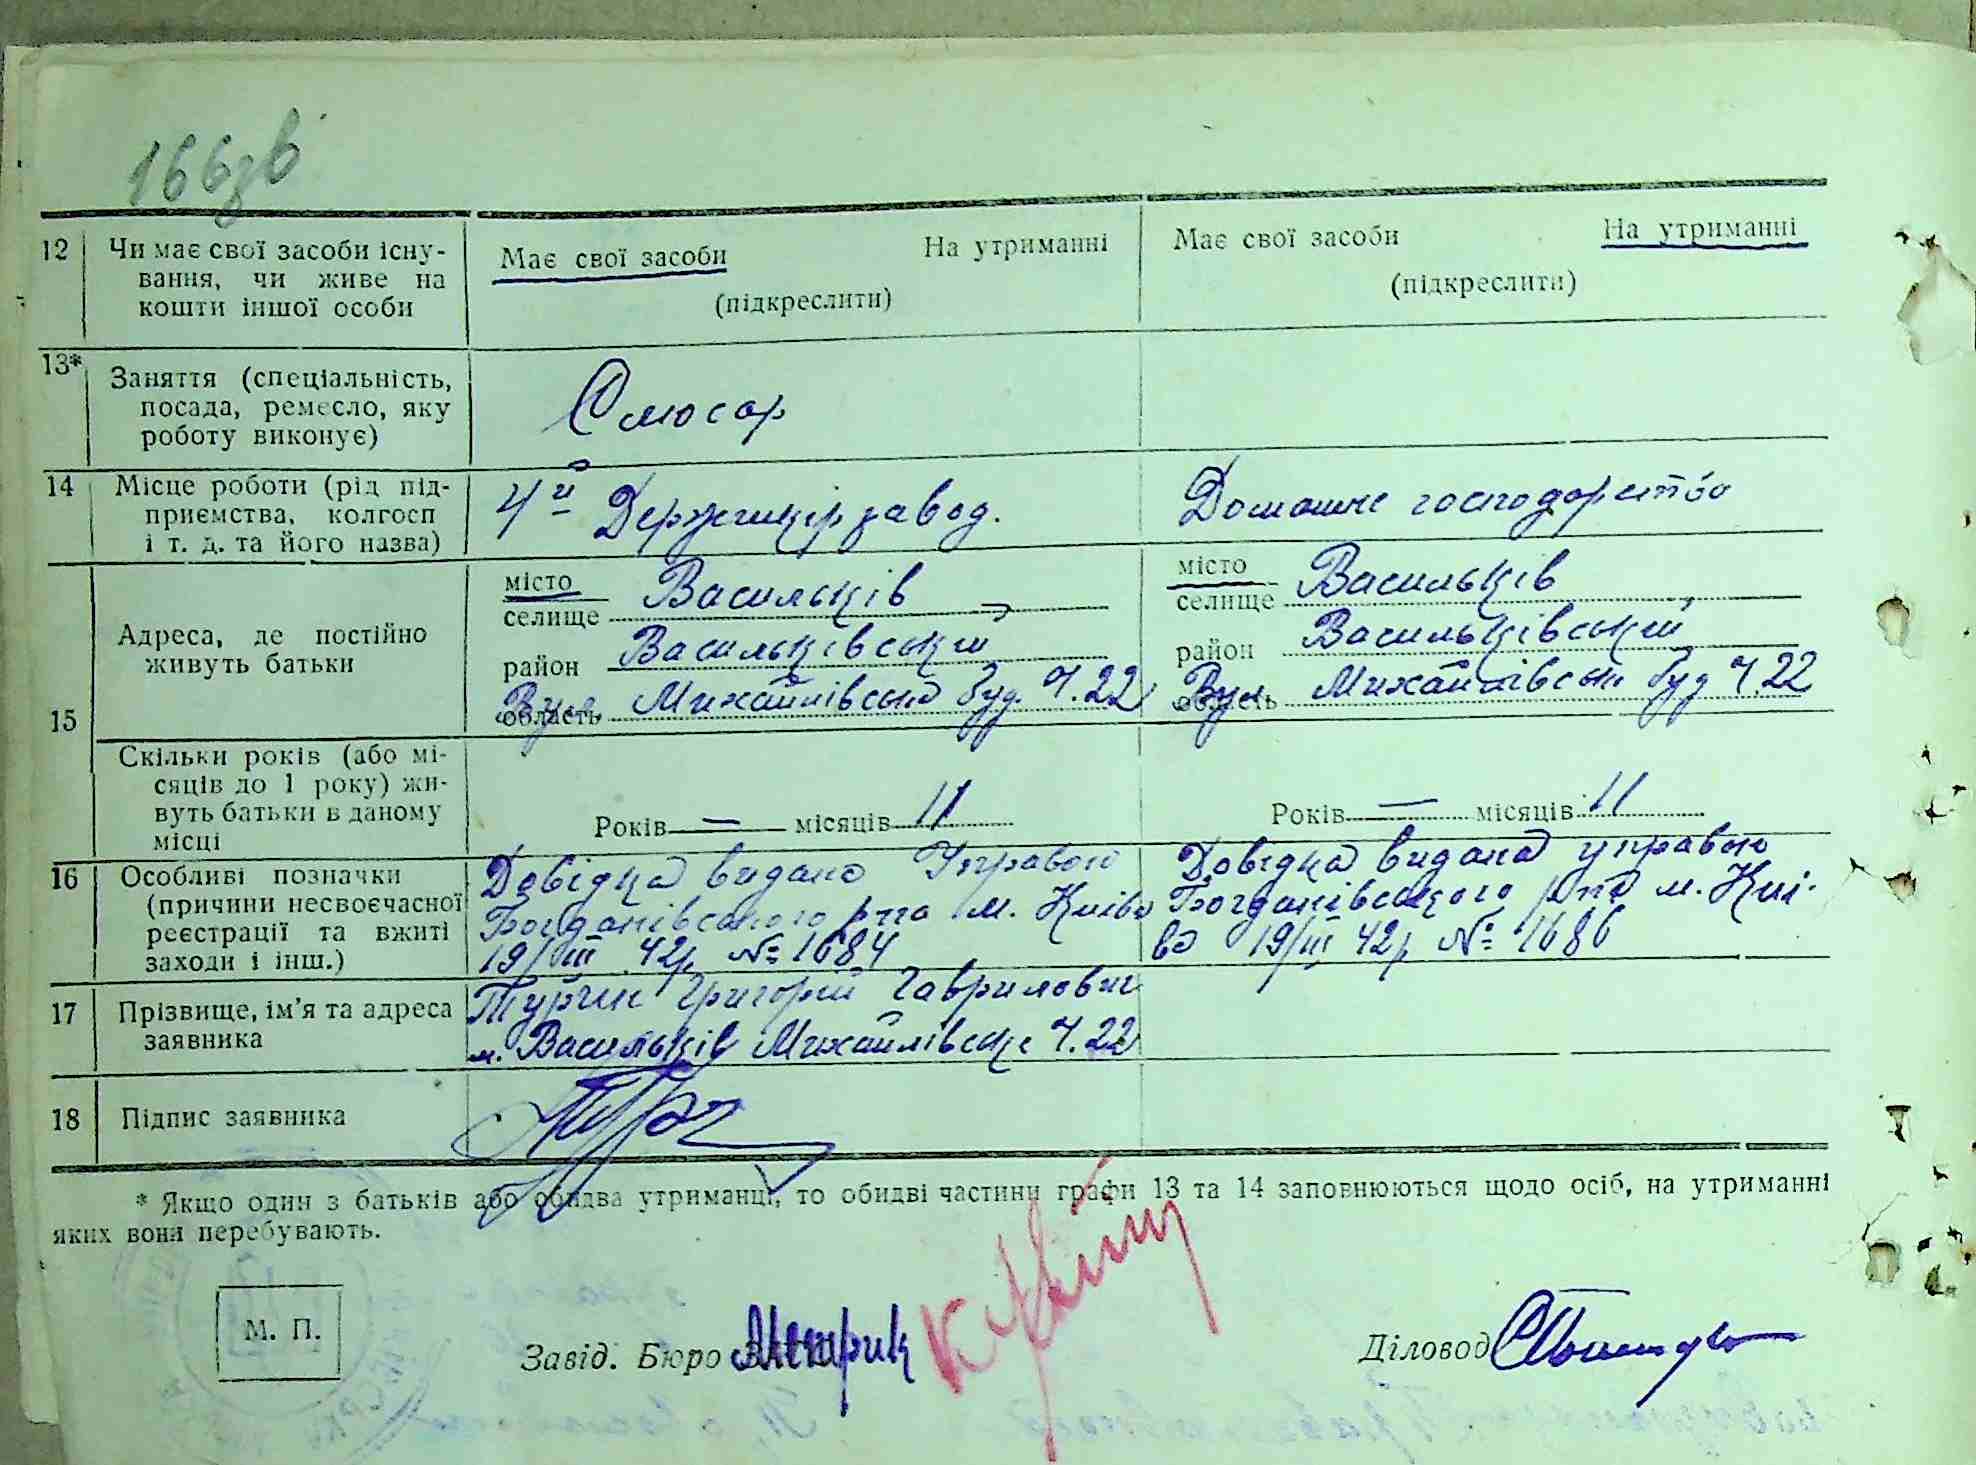 166зв
12 Чи має свої засоби існу-
вання, чи живе на
кошти іншої особи
Має свої засоби На утриманні
(підкреслити)
Має свої засоби На утриманні
(підкреслити)
13* Заняття (спеціальність,
посада, ремесло, яку
роботу виконує)
Слюсар
14 Місце роботи (рід під-
приємства, колгосп
і т. д. та його назва)
4й Держшкірзавод.
Домашнє господарство
15 Адреса, де постійно
живуть батьки
місто
селище Васильків
район Васильківський
область Вул. Михайлівська буд. Ч. 22
місто
селище Васильків
район Васильківський
область Вул Михайлівська буд Ч. 22
Скільки років (або мі-
сяців до 1 року) жи-
вуть батьки в даному
місці
Років — місяців 11
Років — місяців 11
16 Особливі позначки
(причини несвоєчасної
реєстрації та вжиті
заходи і інш.)
Довідка видана Управою
Богданівського р-на м. Києва
19/III 42р № 1684
Довідка видана управою
Богданівського р-на м. Киє-
ва 19/III 42р № 1686
17 Прізвище, ім'я та адреса
заявника
Турчин Григорій Гаврилович
м. Васильків Михайлівська Ч. 22
18 Підпис заявника
* Якщо один з батьків або обидва утриманці, то обидві частини графи 13 та 14 заповнюються щодо осіб, на утриманні
яких вони перебувають.
М. П.
Завід. Бюро
Діловод